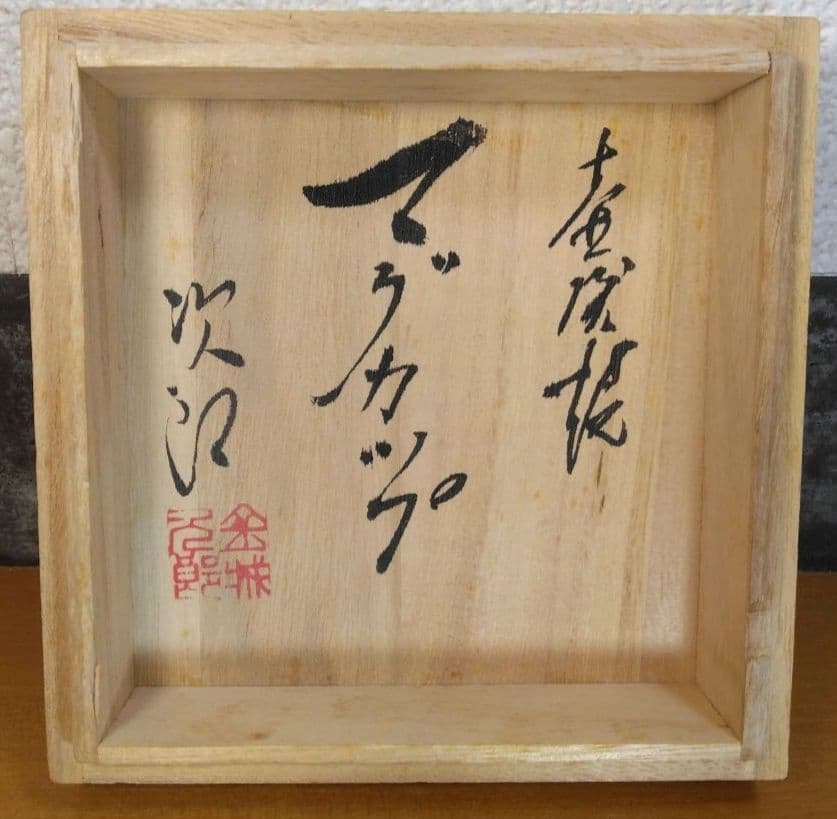 壺屋焼
マグカップ
次郎
金城
次郎